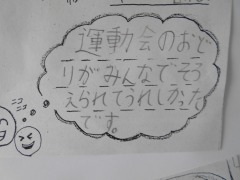 運動会のおど
りがみんなでそろ
えられてうれしかった
です。
ニコ
ニコ